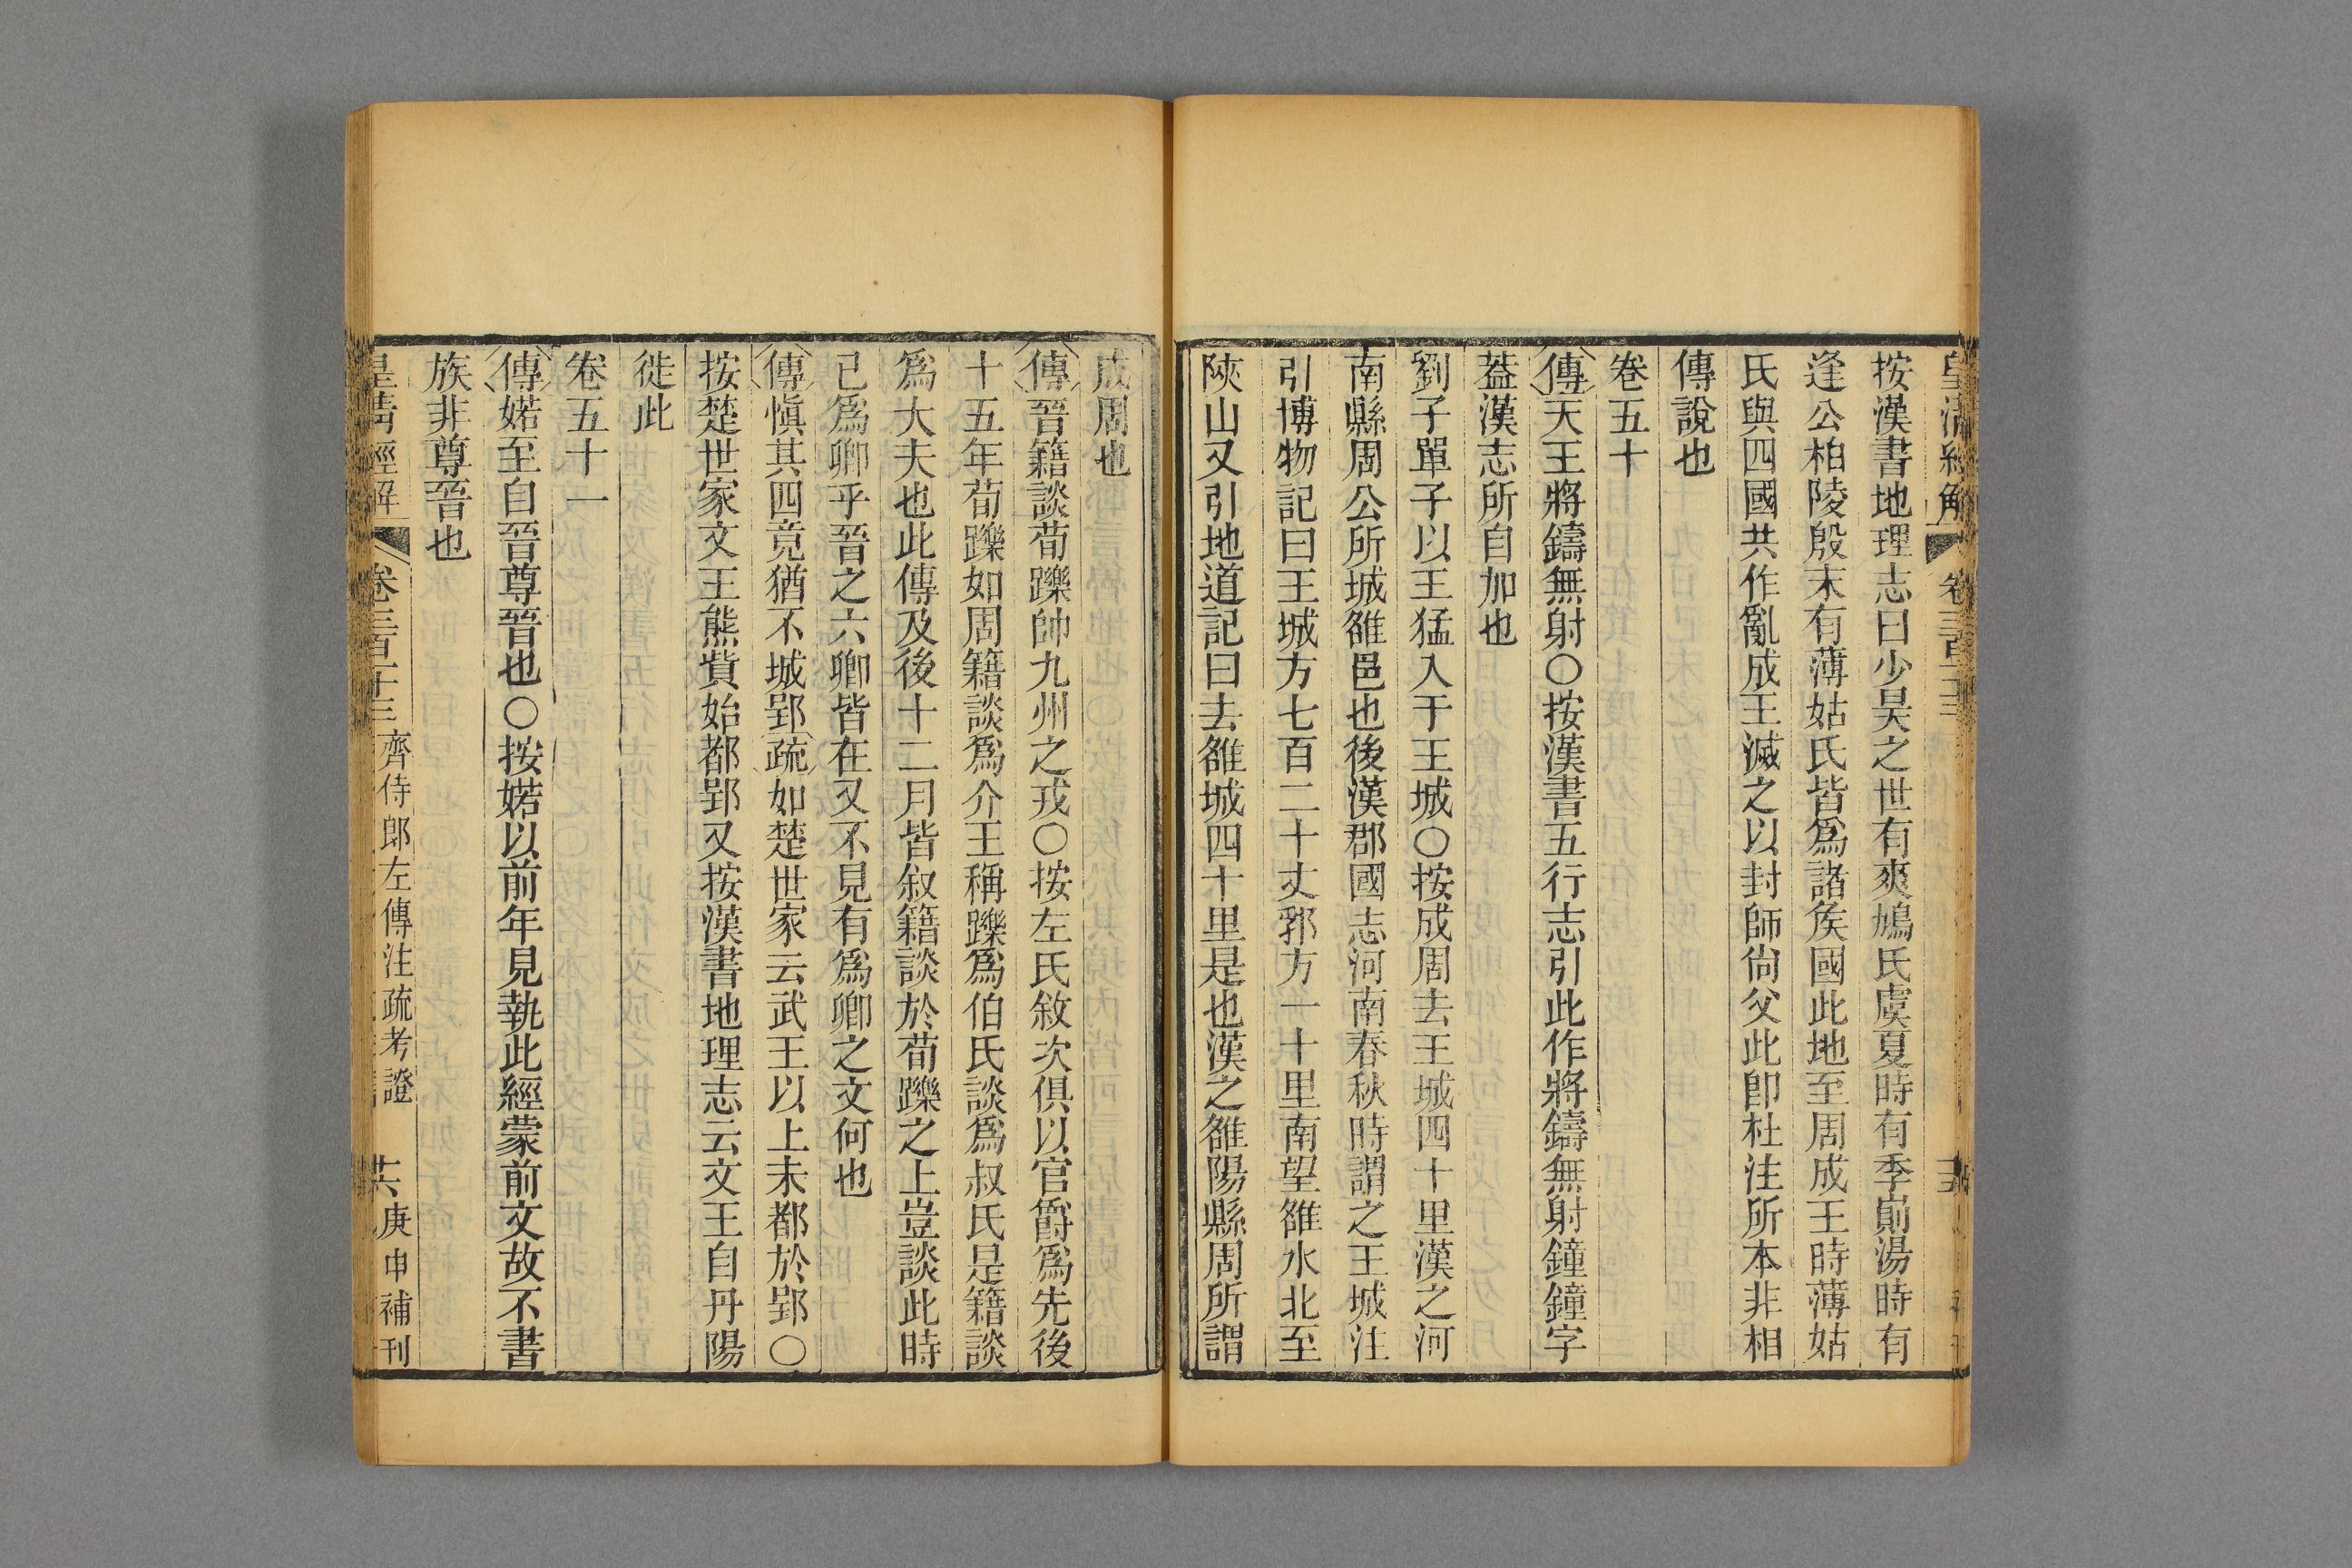 按漢書地理志曰少昊之世有爽鳩氏虞夏時有季崱湯時有
逢公柏陵殷末有薄姑氏皆爲諸矦國此地至周成王時薄姑
氏與四國共作亂成王滅之以封師尙父此卽杜注所本非相
傳說也
卷五十
傳天王將鑄無射○按漢書五行志引此作將鑄無射鐘鐘字
葢漢志所自加也
劉子單子以王猛入于王城○按成周去王城四十里漢之河
南縣周公所城雒邑也後漢郡國志河南春秋時謂之王城注
引博物記曰王城方七百二十丈郛方一十里南望雒水北至
陝山又引地道記曰去雒城四十里是也漢之雒陽縣周所謂
成周也
傳晉籍談荀躒帥九州之戎○按左氏敘次俱以官爵爲先後
十五年荀躒如周籍談爲介王稱躒爲伯氏談爲叔氏是籍談
爲大夫也此傳及後十二月皆叙籍談於荀躒之上豈談此時
已爲卿乎晉之六卿皆在又不見有爲卿之文何也
傳愼其四竟猶不城郢疏如楚世家云武王以上未都於郢○
按楚世家文王熊貲始都郢又按漢書地理志云文王自丹陽
徙此
卷五十一
傳婼至自晉尊晉也○按婼以前年見執此經蒙前文故不書
族非尊晉也
皇清經解 卷三百十三 齊侍郎左傳注疏考證 庚申補刊